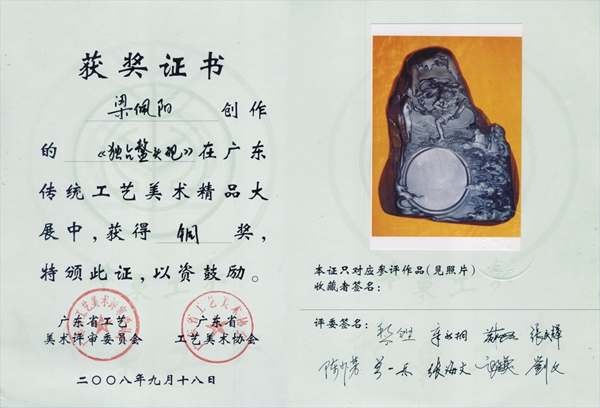 获奖证书
梁佩阳 创作
的《独占鳌头砚》在广东
传统工艺美术精品大
展中，获得 铜 奖，
特颁此证，以资鼓励。
广东省工艺
美术评审委员会
广东省
工艺美术协会
二〇〇八年九月十八日
本证只对应参评作品(见照片)
收藏者签名：
评委签名：
张民辉
张海文